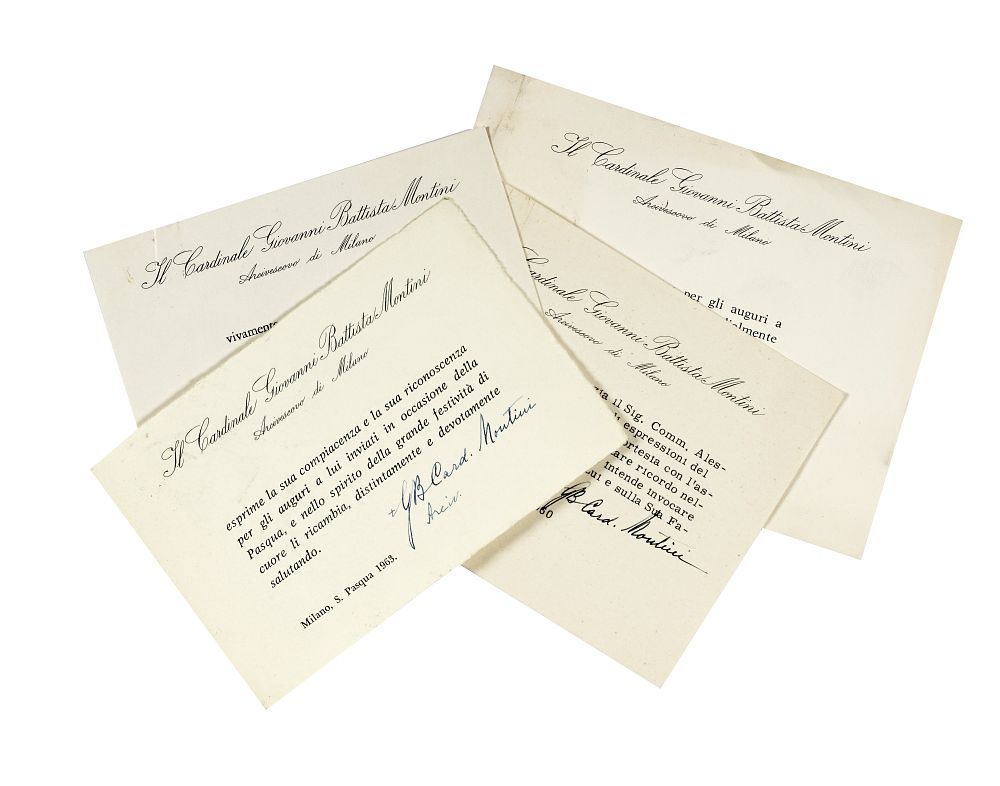 Il Cardinale Giovanni Battista Montini
Arcivescovo di Milano
vivamente
Il Cardinale Giovanni Battista Montini
Arcivescovo di Milano
per gli auguri a
Il Cardinale Giovanni Battista Montini
Arcivescovo di Milano
esprime la sua compiacenza e la sua riconoscenza
per gli auguri a lui inviati in occasione della
Pasqua, e nello spirito della grande festività di
cuore li ricambia, distintamente e devotamente
salutando.
+ GB Card. Montini
Arciv.
Milano, S. Pasqua 1963.
Cardinale Giovanni Battista Montini
Arcivescovo di Milano
il Sig. Comm. Ales-
espressioni del
ortesia con l'as-
are ricordo nel-
intende invocare
ui e sulla Sua Fa-
60
GB Card. Montini